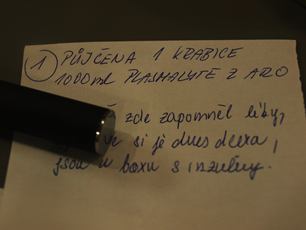 1 PŮJČENA 1 KRABICE
1000ml PLASMALYTE Z ARO
zde zapomněl léky,
si je dnes
jsou v boxu s inzulíny.